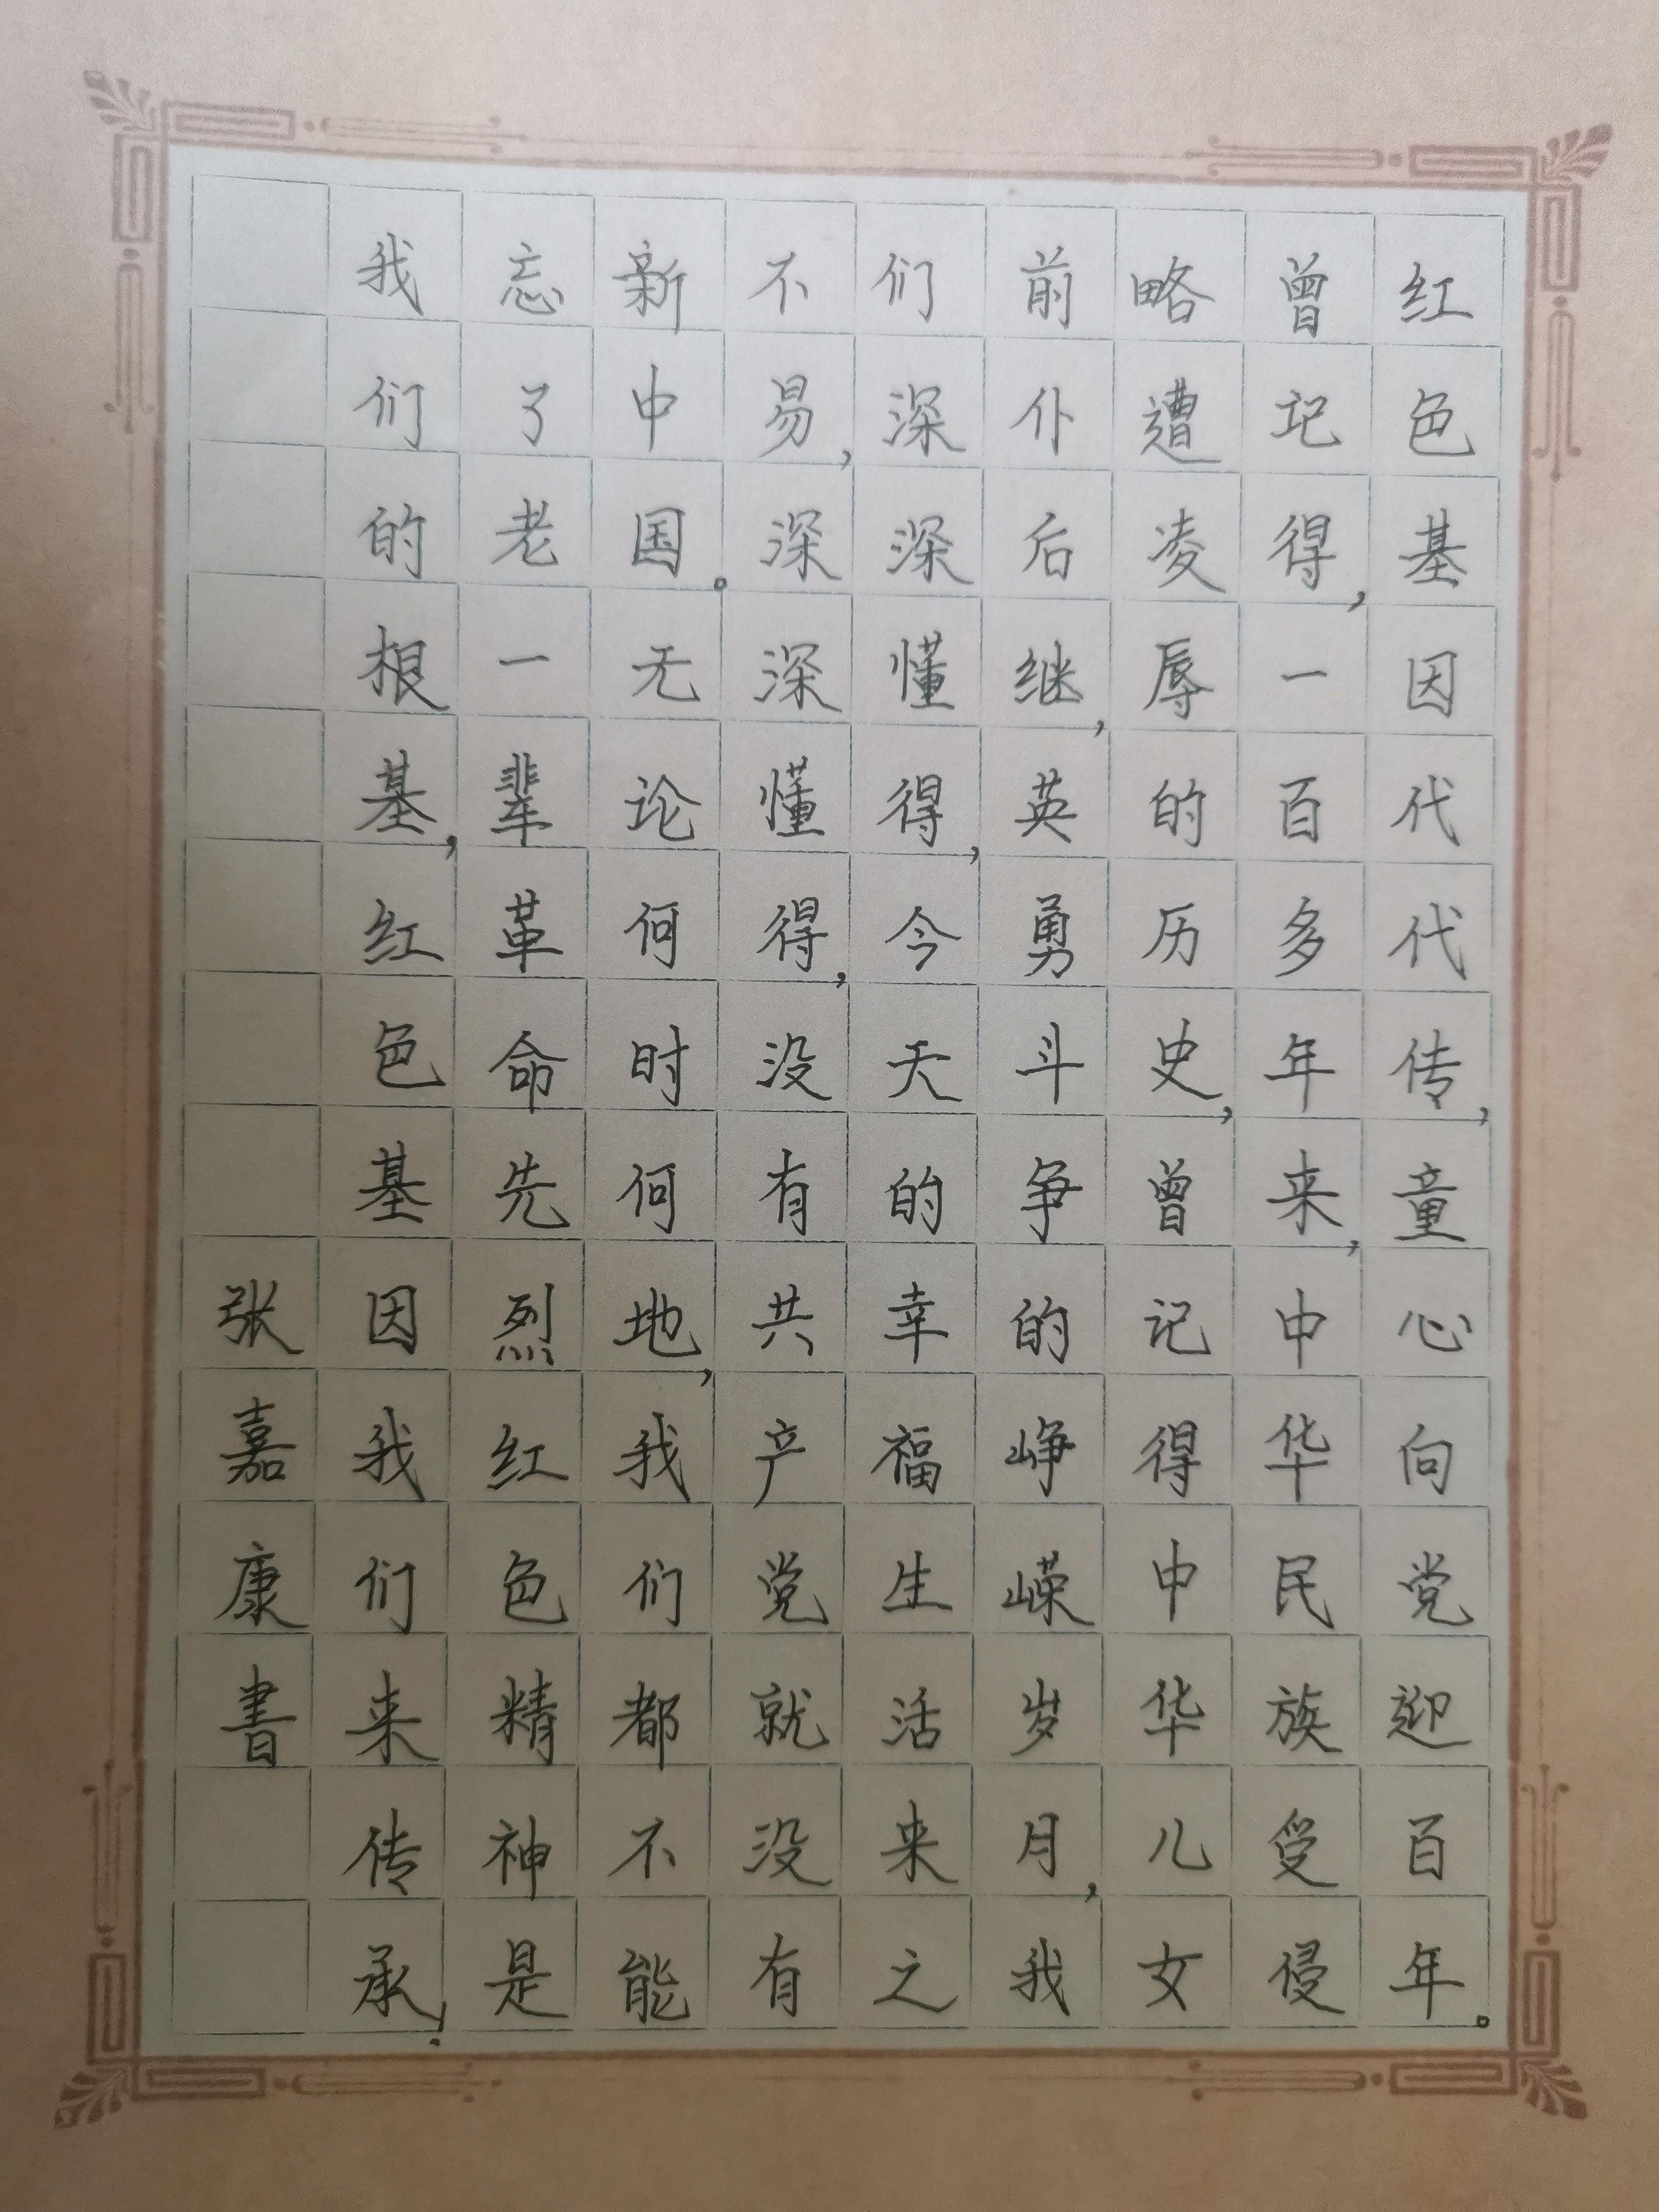 红色基因代代传,童心向党迎百年。
曾记得,一百多年来,中华民族受侵
略遭凌辱的历史,曾记得中华儿女
前仆后继,英勇斗争的峥嵘岁月,我
们深深懂得,今天的幸福生活来之
不易,深深懂得,没有共产党就没有
新中国。无论何时何地,我们都不能
忘了老一辈革命先烈红色精神是
我们的根基,红色基因我们来传承!
张嘉康書